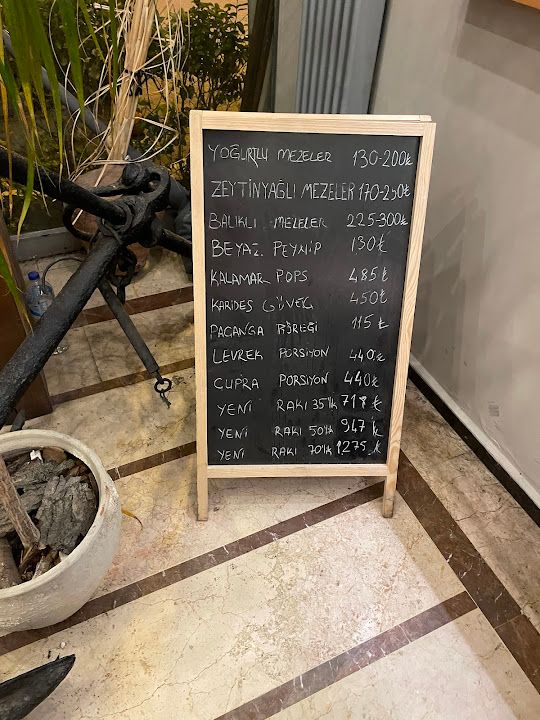 YOĞURTLU MEZELER 130-200₺
ZEYTİNYAĞLI MEZELER 170-250₺
BALIKLI MEZELER 225-300₺
BEYAZ PEYNİP 130₺
KALAMAR POPS 485₺
KARİDES GÜVEÇ 450₺
PAÇANGA BÖREĞİ 115₺
LEVREK PORSİYON 440₺
ÇUPRA PORSİYON 440₺
YENİ RAKI 35'lk 718₺
YENİ RAKI 50'lk 947₺
YENİ RAKI 70'lk 1275₺